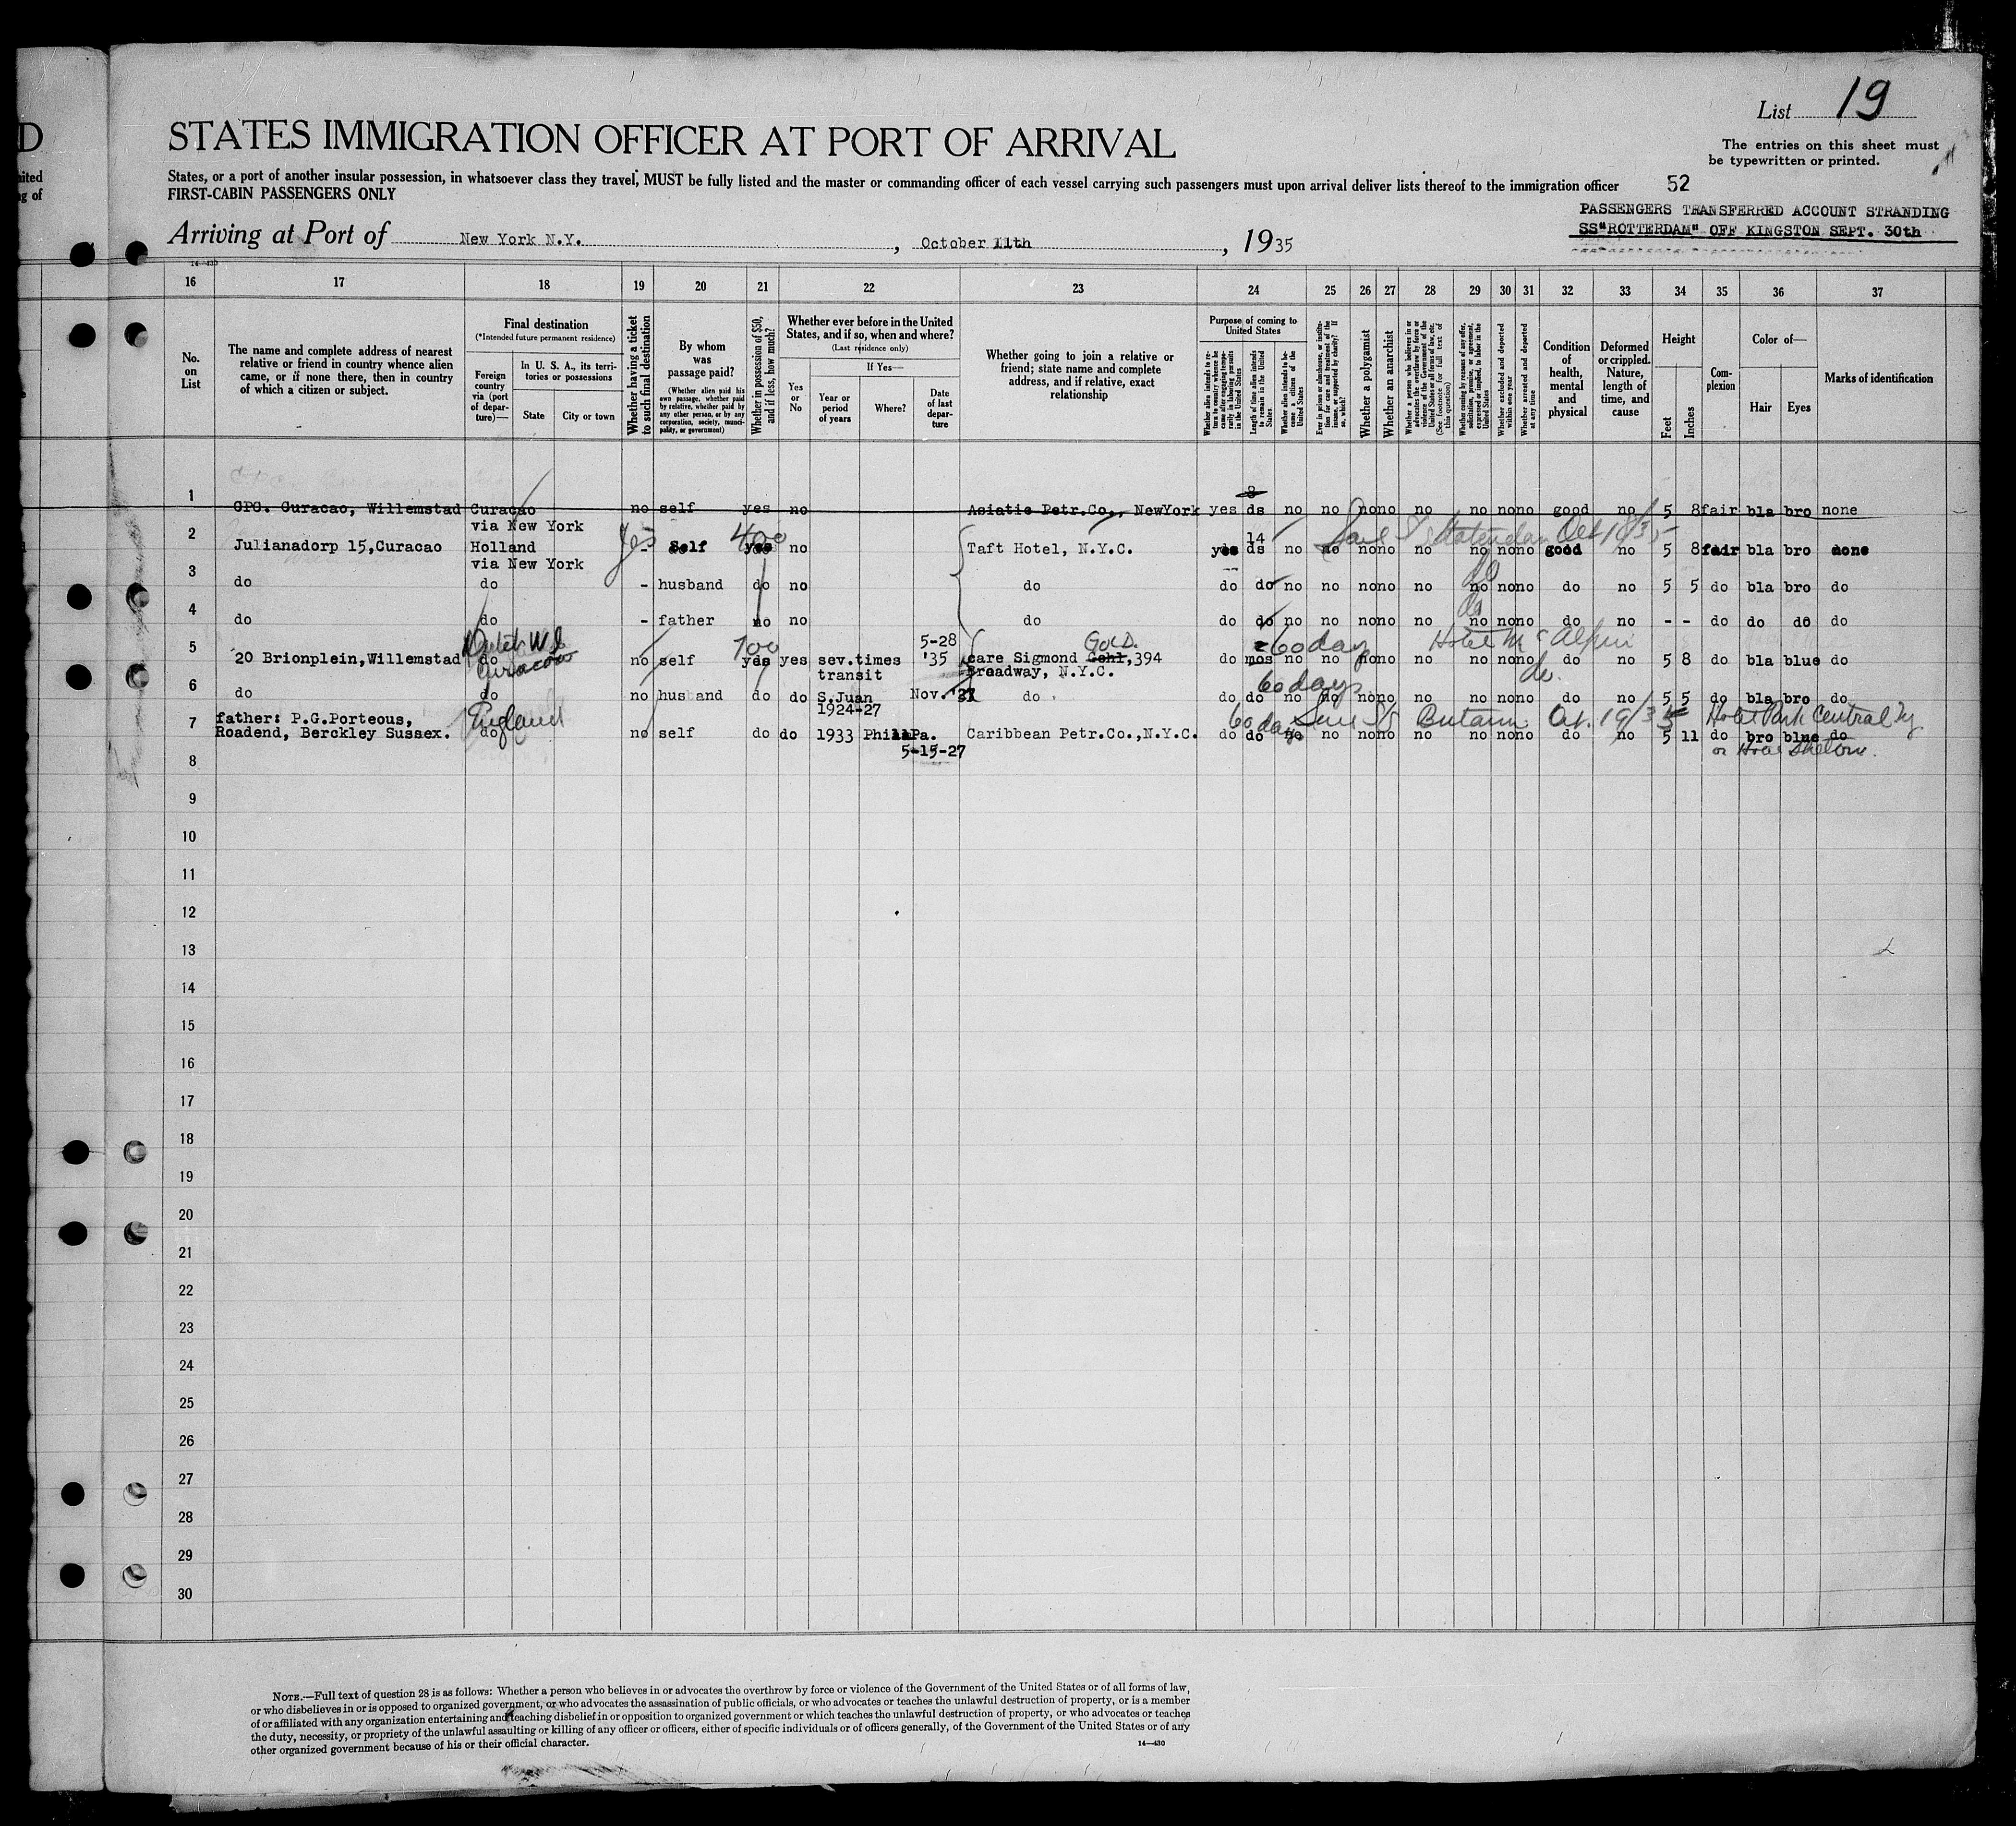 List 19
D
STATES IMMIGRATION OFFICER AT PORT OF ARRIVAL
The entries on this sheet must
be typewritten or printed.
ited
g of
States, or a port of another insular possession, in whatsoever class they travel, MUST be fully listed and the master or commanding officer of each vessel carrying such passengers must upon arrival deliver lists thereof to the immigration officer
52
FIRST-CABIN PASSENGERS ONLY
PASSENGERS TRANSFERRED ACCOUNT STRANDING
SS"ROTTERDAM" OFF KINGSTON SEPT. 30th
Arriving at Port of New York N.Y. , October 11th , 1935
14-430
16 17 18 19 20 21 22 23 24 25 26 27 28 29 30 31 32 33 34 35 36 37
No. on List
The name and complete address of nearest relative or friend in country whence alien came, or if none there, then in country of which a citizen or subject.
Final destination
(*Intended future permanent residence)
Foreign country via (port of departure)—
In U. S. A., its territories or possessions
State
City or town
Whether having a ticket to such final destination
By whom was passage paid?
(Whether alien paid his own passage, whether paid by relative, whether paid by any other person, or by any corporation, society, municipality, or government)
Whether in possession of $50, and if less, how much?
Whether ever before in the United States, and if so, when and where?
(Last residence only)
Yes or No
If Yes—
Year or period of years
Where?
Date of last departure
Whether going to join a relative or friend; state name and complete address, and if relative, exact relationship
Purpose of coming to United States
Whether alien intends to return to country whence he came after engaging temporarily in laboring pursuits in the United States
Length of time alien intends to remain in the United States
Whether alien intends to become a citizen of the United States
Ever in prison or almshouse, or institution for care and treatment of the insane, or supported by charity? If so, which?
Whether a polygamist
Whether an anarchist
Whether a person who believes in or advocates the overthrow by force or violence of the Government of the United States or all forms of law, etc. (See footnote for full text of this question)
Whether coming by reason of any offer, solicitation, promise, or agreement, expressed or implied, to labor in the United States
Whether excluded and deported within one year
Whether arrested and deported at any time
Condition of health, mental and physical
Deformed or crippled. Nature, length of time, and cause
Height
Feet
Inches
Complexion
Color of—
Hair
Eyes
Marks of identification
8
1 CPC. Curacao, Willemstad Curacao no self yes no Asiatic Petr.Co., NewYork yes ds no no no no no no no no good no 5 8 fair bla bro none
via New York
yes 400 14 Sail SS Statendam Oct 18/35
2 Julianadorp 15,Curacao Holland - Self yes no Taft Hotel, N.Y.C. yes ds no no no no no no no no good no 5 8 fair bla bro none
via New York
do
3 do do - husband do no do do do no no no no no no no no do no 5 5 do bla bro do
do
4 do do - father no no do do do no no no no no no no no do no - - do do do do
Dutch W.I. Curacao 700 5-28 GOLD. 60 days Hotel McAlpin
5 20 Brionplein,Willemstad do no self yes yes sev.times '35 care Sigmond Gohl,394 do mos no no no no no no no no do no 5 8 do bla blue do
transit Broadway, N.Y.C.
60 days do.
6 do do no husband do do S.Juan Nov.'27 do do do no no no no no no no no do no 5 5 do bla bro do
1924-27
7 father: P.G.Porteous, England 60 days Oct. 19/35 Hotel Park Central Ny
Roadend, Berckley Sussex. do no self do do 1933 Phila Pa. Caribbean Petr.Co.,N.Y.C. do do no no no no no no no no do no 5 11 do bro blue do
5-15-27
or Hotel Shelton.
8
9
10
11
12
13
14
15
16
17
18
19
20
21
22
23
24
25
26
27
28
29
30
NOTE.—Full text of question 28 is as follows: Whether a person who believes in or advocates the overthrow by force or violence of the Government of the United States or of all forms of law,
or who disbelieves in or is opposed to organized government, or who advocates the assassination of public officials, or who advocates or teaches the unlawful destruction of property, or is a member
of or affiliated with any organization entertaining and teaching disbelief in or opposition to organized government or which teaches the unlawful destruction of property, or who advocates or teaches
the duty, necessity, or propriety of the unlawful assaulting or killing of any officer or officers, either of specific individuals or of officers generally, of the Government of the United States or of any
other organized government because of his or their official character.
14—430